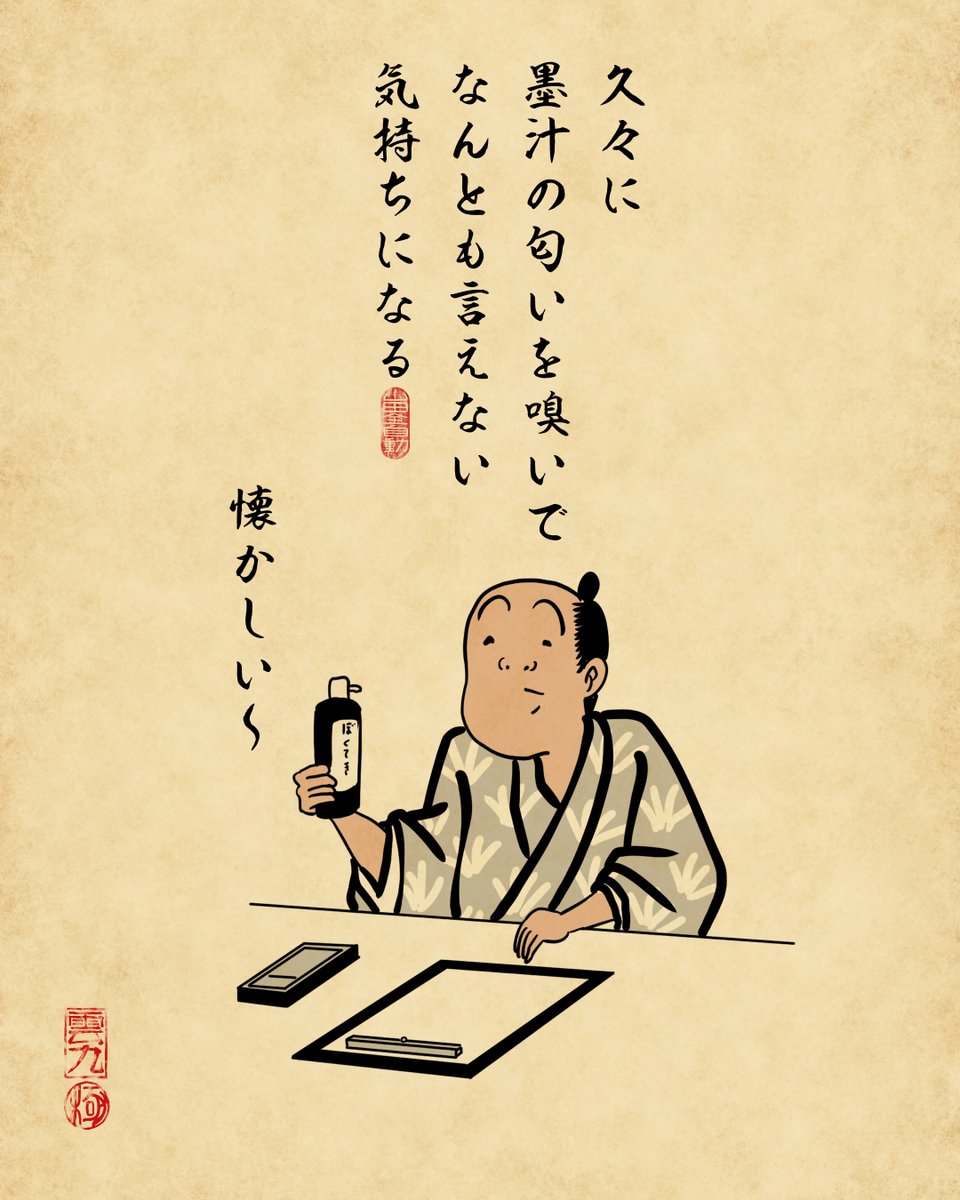 久々に
墨汁の匂いを嗅いで
なんとも言えない
気持ちになる
懐かしい〜
ぼくてき